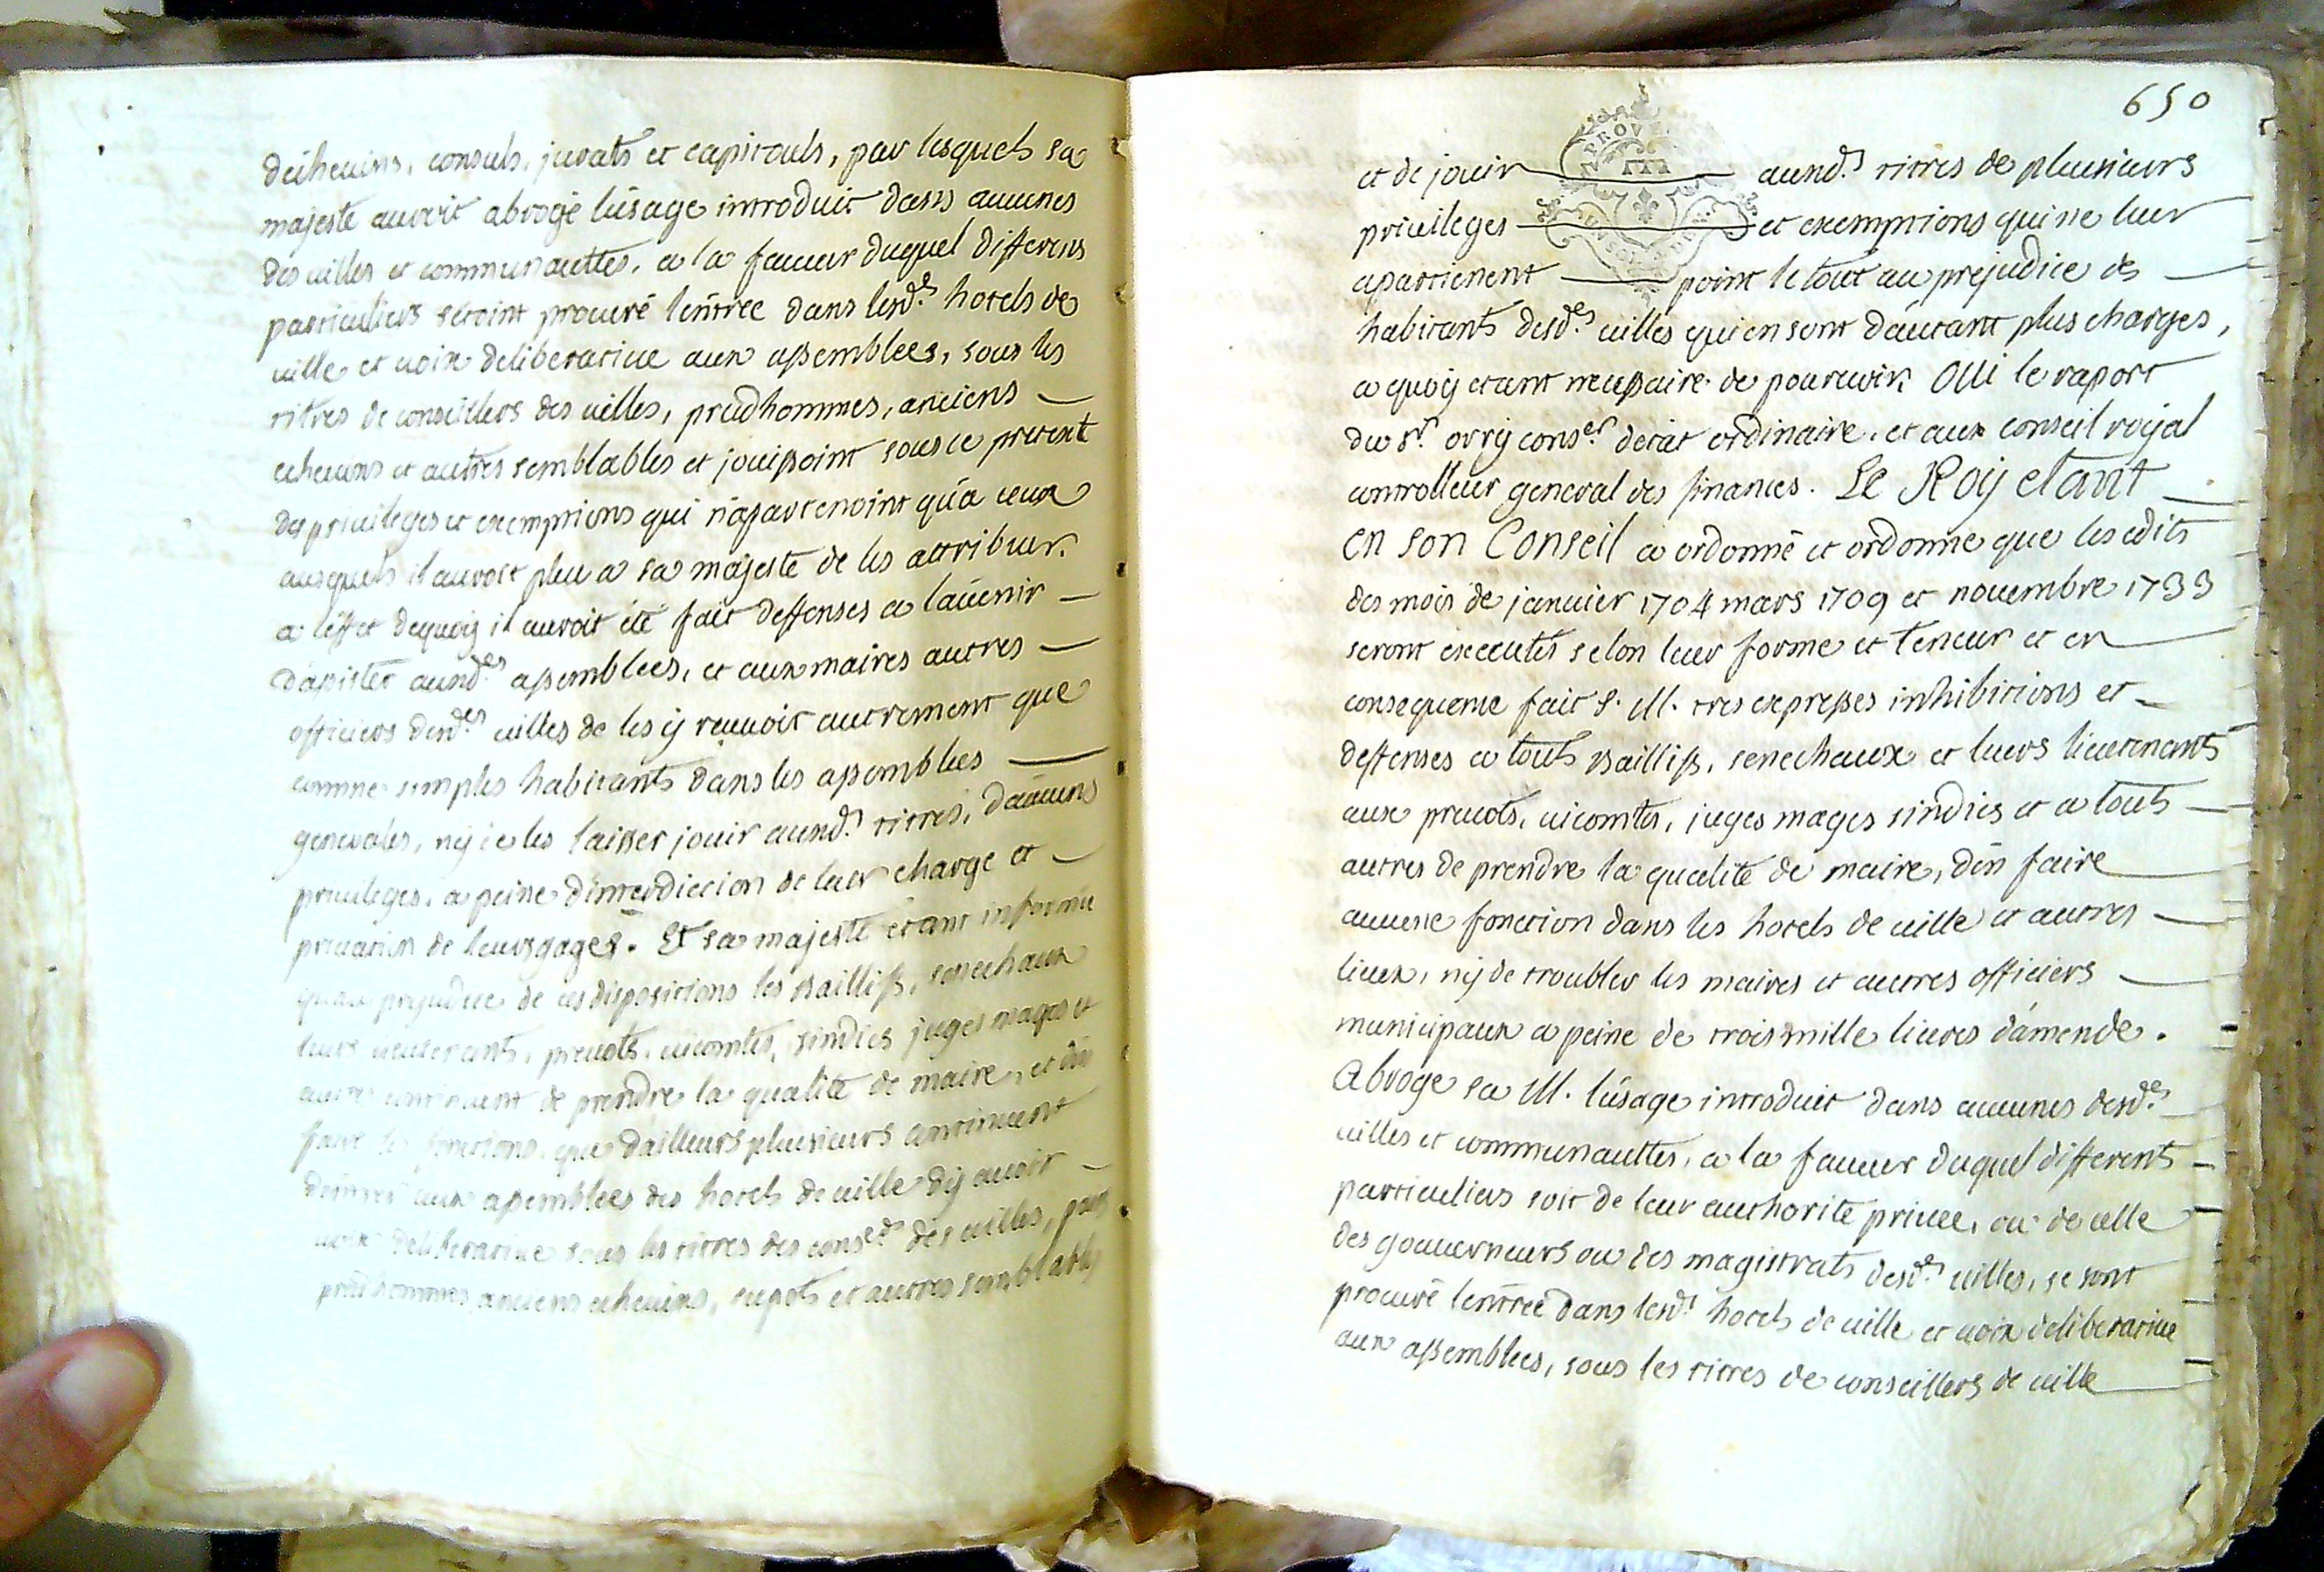 déchevins, consuls, jurats et capitouls, par lesquels sa
majesté auroit abrogé lúsage introduit dans aucunes
des villes et communauttés, a la faveur duquel differens
particuliers séroint procuré lentrée dans lesd.es hotels de
ville et voix deliberative aux assemblées, sous les
titres de conseillers des villes, prudhommes, anciens
echevins et autres semblables et jouissoint sous ce pretext
des privileges et exemptions qui n'apartenoint qu'a ceux
ausquels il auroit pleu a sa majesté de les attribuer.
a leffet dequoy il auroit été fait deffenses a lavenir
d'assister ausd.es assemblées, et aux maires autres
officiers desd.es villes de les y recevoir autrement que
comme simples habitants dans les assemblées
generales, ny de les laisser jouir ausd.s titres, daucuns
privileges, a peine dinterdiction de leur charge et
privation de leurs gages. Et sa majesté etant informée
quau prejudice de ces disposicions les Baillifs, senechaux
leurs lieutenants, prevots, vicomtes, sindics juges mages et
autres continuent de prendre la qualité de maire, et d'en
faire les fonctions, que dailleurs plusieurs continuent
dentrer aux assemblées des hotels de ville dy avoir
voix deliberative sous les titres des cons.ers des villes,
prudhommes, anciens echevins, supots et autres semblables
650
et de jouir ausd.s titres de plusieurs
privileges et exemptions qui ne leur
apartienent point le tout au prejudice des
habitants desd.es villes qui en sont d'autant plus charges,
a quoy etant necessaire de pourvoir, Oui le raport
du s.r orry cons.er detat ordinaire, et aux conseil royal
controlleur general des finances. Le Roy etant
en son Conseil a ordonné et ordonne que les edits
des mois de janvier 1704 mars 1709 et novembre 1733
seront executés selon leur forme et teneur et en
consequence fait S. M. tres expresses inhibitions et
deffenses a touts Baillifs, senechaux et leurs lieutenants
aux prevots, vicomtes, juges mages sindics et a touts
autres de prendre la qualité de maire, d'en faire
aucune fonction dans les hotels de ville et autres
lieux, ny de troubler les maires et autres officiers
municipaux a peine de trois mille livres d'amende.
Abroge sa M. lúsage introduit dans aucunes desd.es
villes et communauttes, a la faveur duquel differents
particuliers soit de leur authorité privée, ou de celle
des gouverneurs ou des magistrats desd.es villes, se sont
procuré lentrée dans lesd.s hotels de ville et voix deliberative
aux assemblées, sous les titres de conseillers de ville